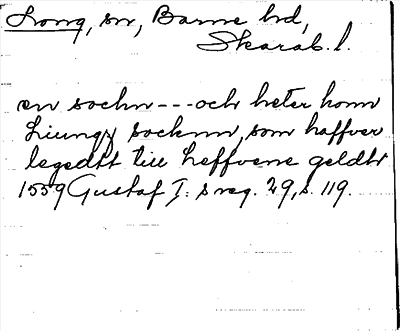 Long, sn, Barne hd,
Skarab. l.
en sochn --- och heter honn
Liungz socknn, som haffver
legedtt till Leffvene geldtt
1559 Gustaf I:s reg. 29, s. 119.